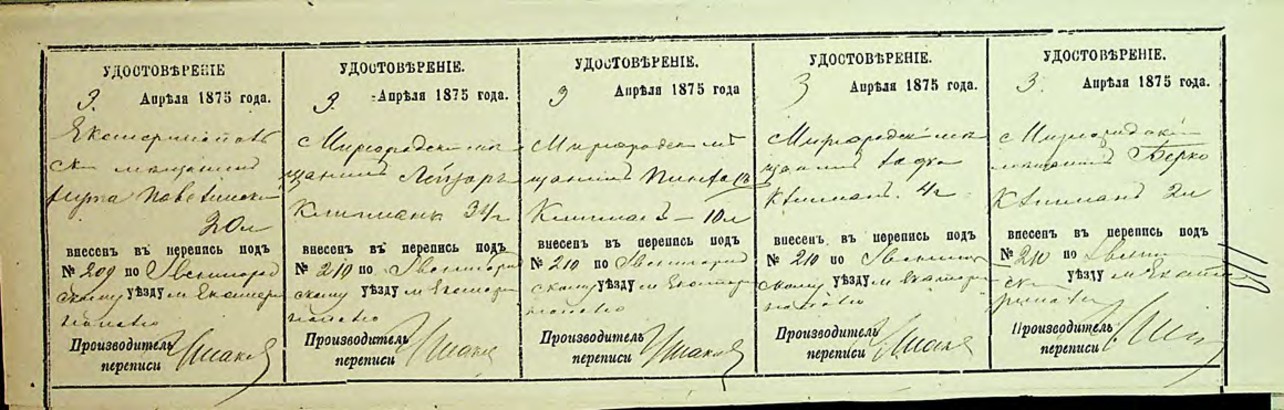 УДОСТОВѢРЕНІЕ
3. Апрѣля 1875 года.
мещанинъ
20 л
внесенъ въ перепись подъ
№ 209 по Звенигород
скому уѣзду м Екатери
Производитель
переписи Ушаков
УДОСТОВѢРЕНІЕ.
3. Апрѣля 1875 года.
с Миргородскій мѣ
щанинъ Лейзоръ
Клигманъ 34 г
внесенъ въ перепись подъ
№ 210 по Звенигород
скому уѣзду м Екатери
Производитель
переписи Ушаков
УДОСТОВѢРЕНІЕ.
3 Апрѣля 1875 года
с Миргородскій мѣ
щанинъ Пинхасъ
Клигманъ – 10 л
внесенъ въ перепись подъ
№ 210 по Звенигород
скому уѣзду м Екатери
Производитель
переписи Ушаков
УДОСТОВѢРЕНІЕ.
3 Апрѣля 1875 года.
Миргородскій мѣ
щанинъ
Клигманъ. 4 г
внесенъ въ перепись подъ
№ 210 по Звениг
скому уѣзду м Екатери
Производитель
переписи Ушаков
УДОСТОВѢРЕНІЕ.
3. Апрѣля 1875 года.
с Миргородскій
мещанинъ Берко
Клигманъ 2 л
внесенъ въ перепись подъ
№ 210 по Звениг
уѣзду м Екате
Производитель
переписи